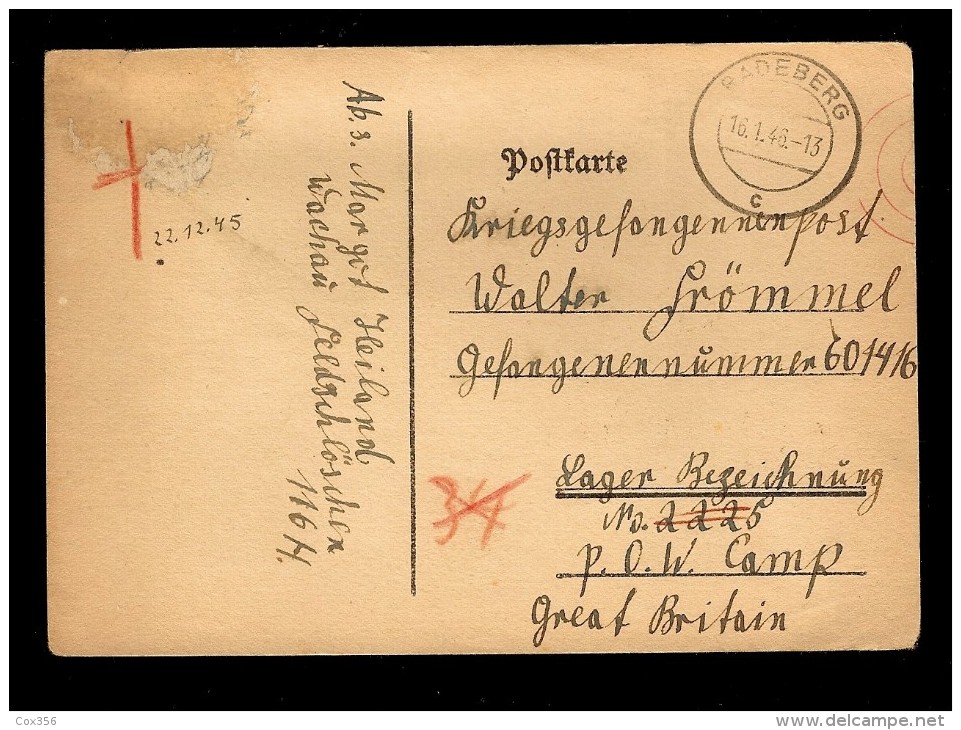 Ab. s. Margot Heiland
Wachau Feldschlöschen
116 H.
22.12.45
RADEBERG
16.1.46.-13
c
Postkarte
Kriegsgefangenenpost
Walter Frömmel
Gefangenennummer 601416
Lager Bezeichnung
No. 2225
P.O.W. Camp
Great Britain
Cox356
delcampe.net